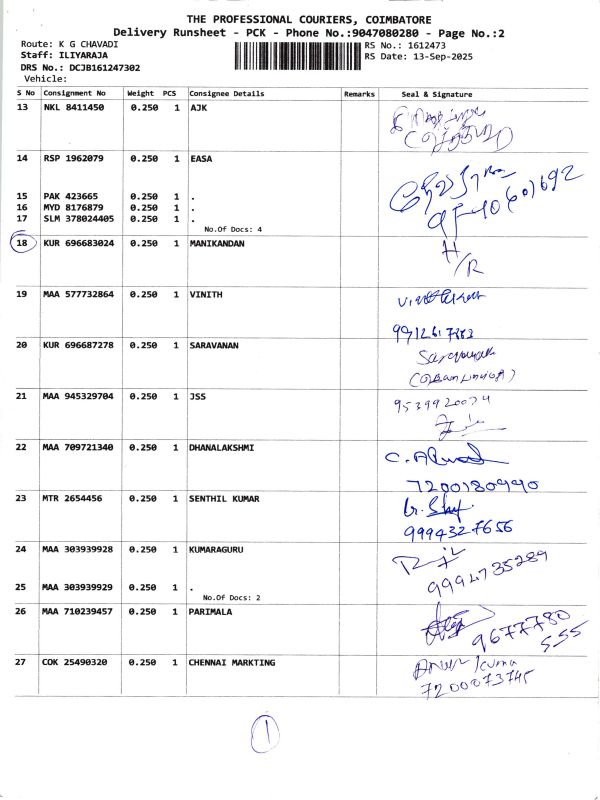 THE PROFESSIONAL COURIERS, COIMBATORE
Delivery Runsheet - PCK - Phone No.:9047080280 - Page No.:2
Route: K G CHAVADI RS No.: 1612473
Staff: ILIYARAJA RS Date: 13-Sep-2025
DRS No.: DCJB161247302
Vehicle:
S No Consignment No Weight PCS Consignee Details Remarks Seal & Signature
13 NKL 8411450 0.250 1 AJK
14 RSP 1962079 0.250 1 EASA
15 PAK 423665 0.250 1 .
16 MYD 8176879 0.250 1 .
17 SLM 378024405 0.250 1 .
No.Of Docs: 4
18 KUR 696683024 0.250 1 MANIKANDAN H/R
19 MAA 577732864 0.250 1 VINITH
20 KUR 696687278 0.250 1 SARAVANAN
21 MAA 945329704 0.250 1 JSS
22 MAA 709721340 0.250 1 DHANALAKSHMI
7200180990
23 MTR 2654456 0.250 1 SENTHIL KUMAR
9994327656
24 MAA 303939928 0.250 1 KUMARAGURU
9994735289
25 MAA 303939929 0.250 1 .
No.Of Docs: 2
26 MAA 710239457 0.250 1 PARIMALA
9677780
555
27 COK 25490320 0.250 1 CHENNAI MARKTING
7200073745
1